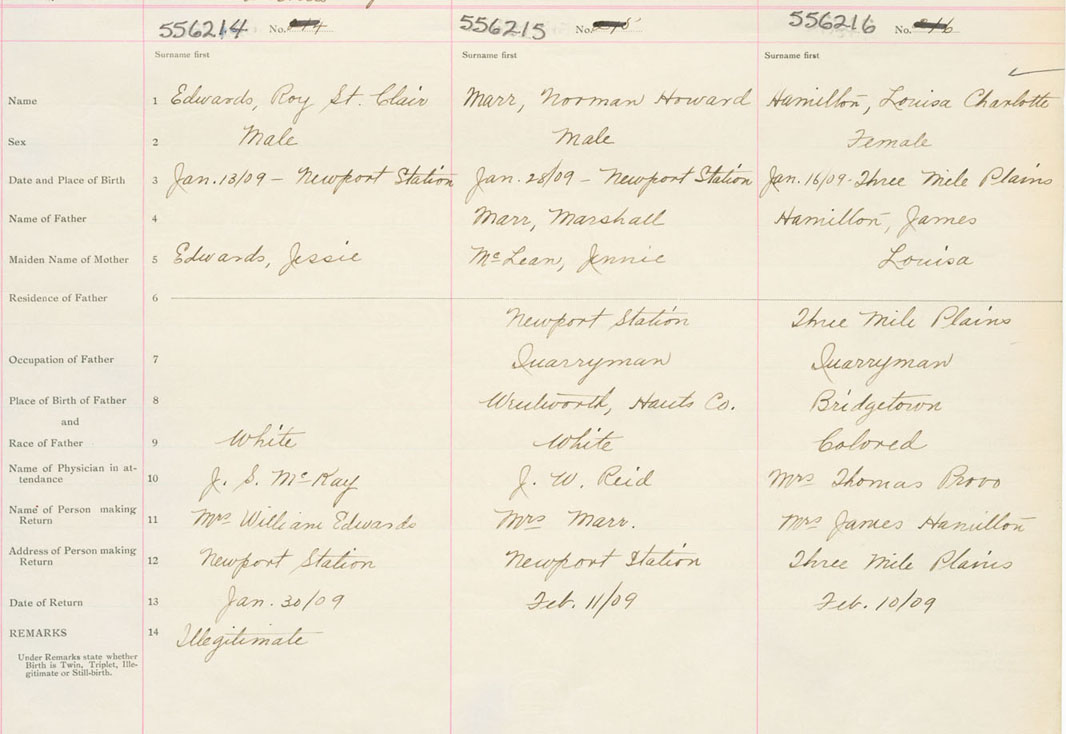 556214 No.
556215 No.
556216 No.
Surname first
Surname first
Surname first
Name 1 Edwards, Roy St. Clair Marr, Norman Howard Hamilton, Louisa Charlotte
Sex 2 Male Male Female
Date and Place of Birth 3 Jan. 13/09 - Newport Station Jan. 28/09 - Newport Station Jan. 16/09 - Three Mile Plains
Name of Father 4 Marr, Marshall Hamilton, James
Maiden Name of Mother 5 Edwards, Jessie McLean, Jennie Louisa
Residence of Father 6
Newport Station Three Mile Plains
Occupation of Father 7 Quarryman Quarryman
Place of Birth of Father 8 Wentworth, Hants Co. Bridgetown
and
Race of Father 9 White White Colored
Name of Physician in at-
tendance 10 J. S. McKay J. W. Reid Mrs Thomas Provo
Name of Person making
Return 11 Mrs William Edwards Mrs Marr. Mrs James Hamilton
Address of Person making
Return 12 Newport Station Newport Station Three Mile Plains
Date of Return 13 Jan. 30/09 Feb. 11/09 Feb. 10/09
REMARKS 14 Illegitimate
Under Remarks state whether
Birth is Twin, Triplet, Ille-
gitimate or Still-birth.